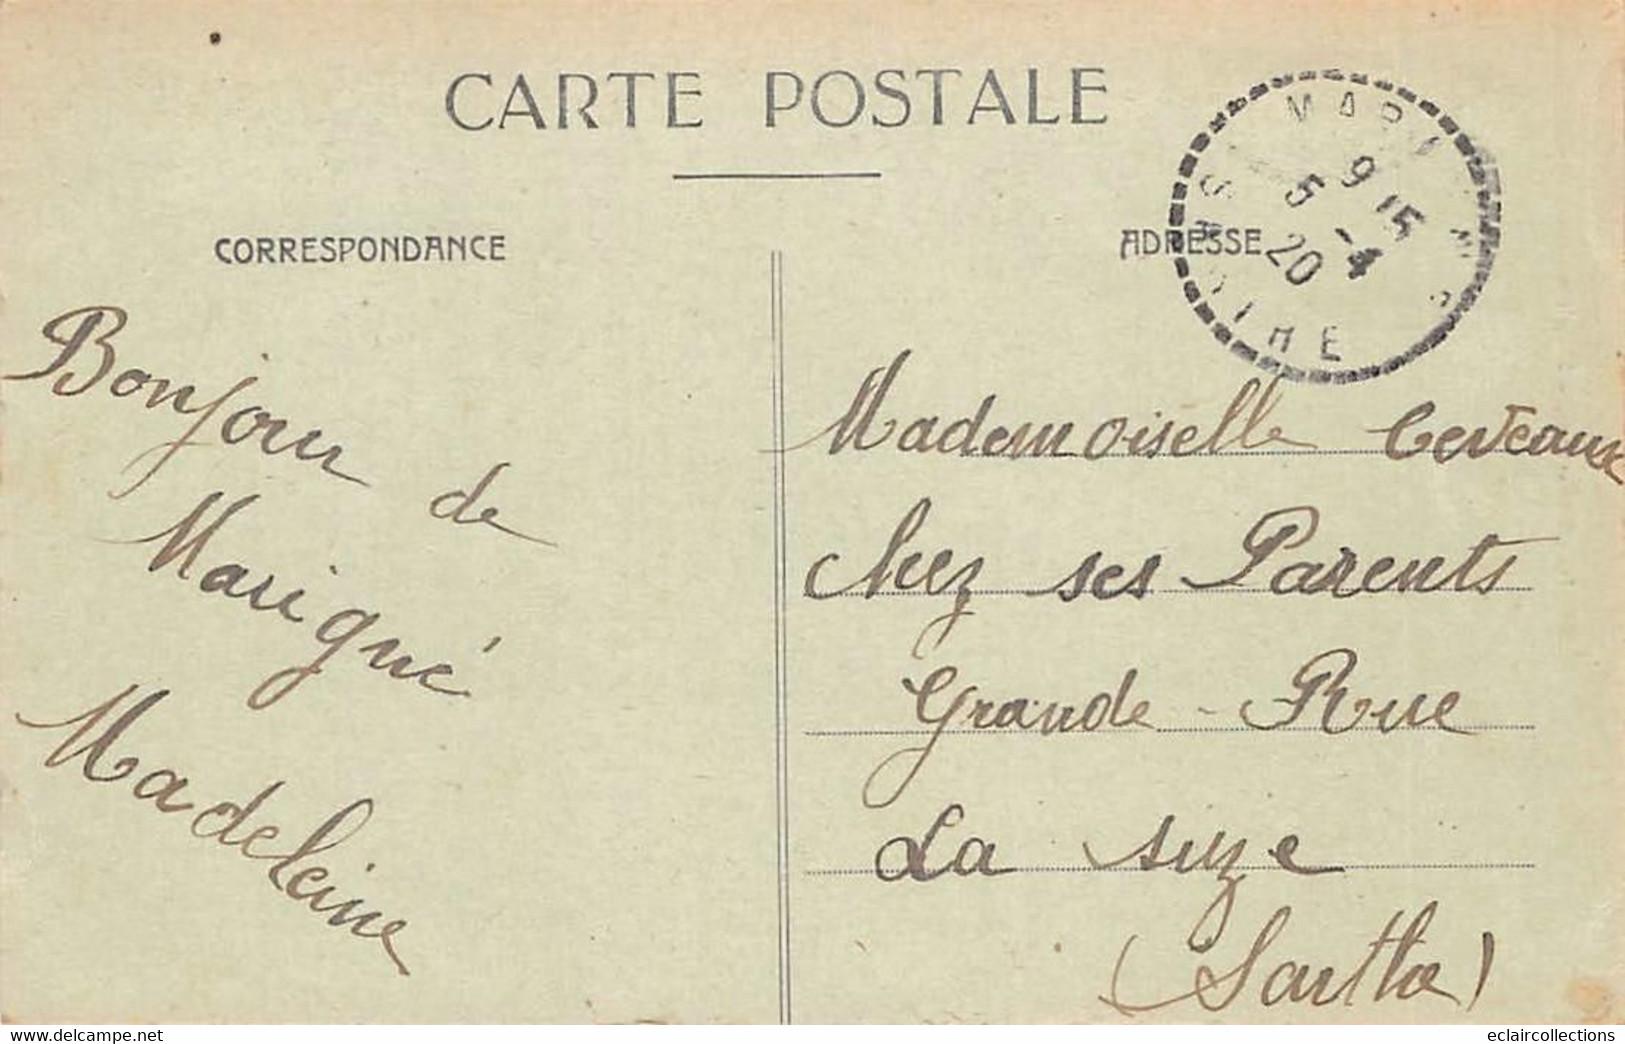 CARTE POSTALE
CORRESPONDANCE
ADRESSE
9 15
5 -4
20
Bonjour de
Marigné
Madeleine
Mademoiselle
chez ses Parents
Grande-Rue
La suze
(Sarthe)
www.delcampe.net
eclaircollections